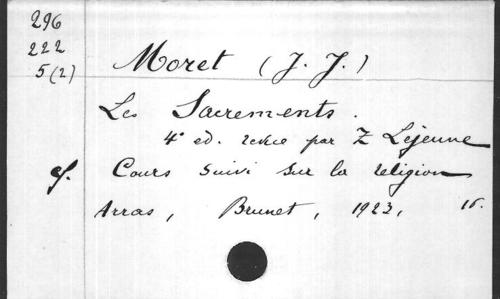 296
222
5(2)
Moret (J. J.)
Les Sacrements.
4e ed. revue par Z Lejeune
cf. Cours suivi sur la religion
Arras, Brunet, 1923, 16.